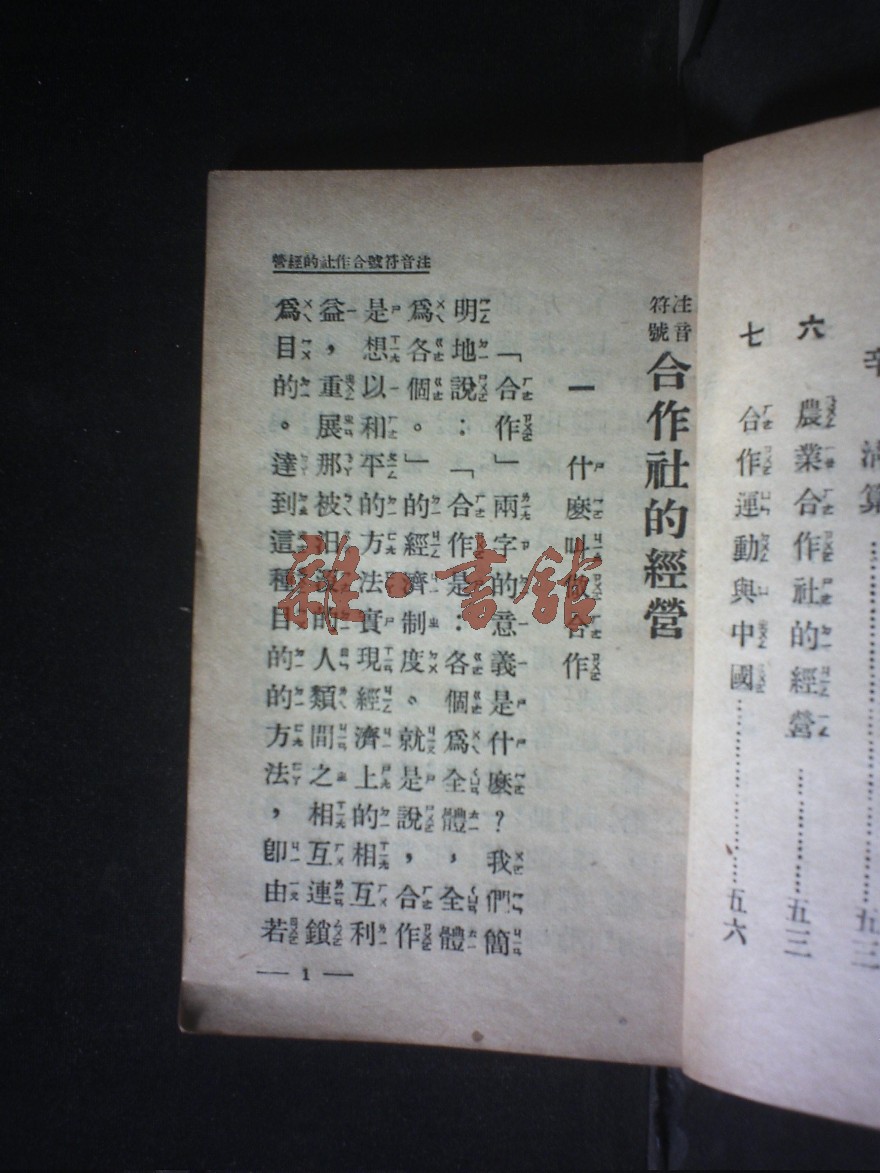 辛 清算…………五三
六 農業合作社的經營…………五三
七 合作運動與中國…………五六
注音符號合作社的經營
注音符號 合作社的經營
一 什麼叫做合作
「合作」兩字的意義是什麼？我們簡
明地說：「合作是：各個爲全體，全體
爲各個。」的經濟制度。就是說，合作
是想以和平的方法實現經濟上的相互利
益，重展那被汩沒的人類間之相互連鎖
爲目的。達到這種目的的方法，卽由若
— 1 —
雜·書館